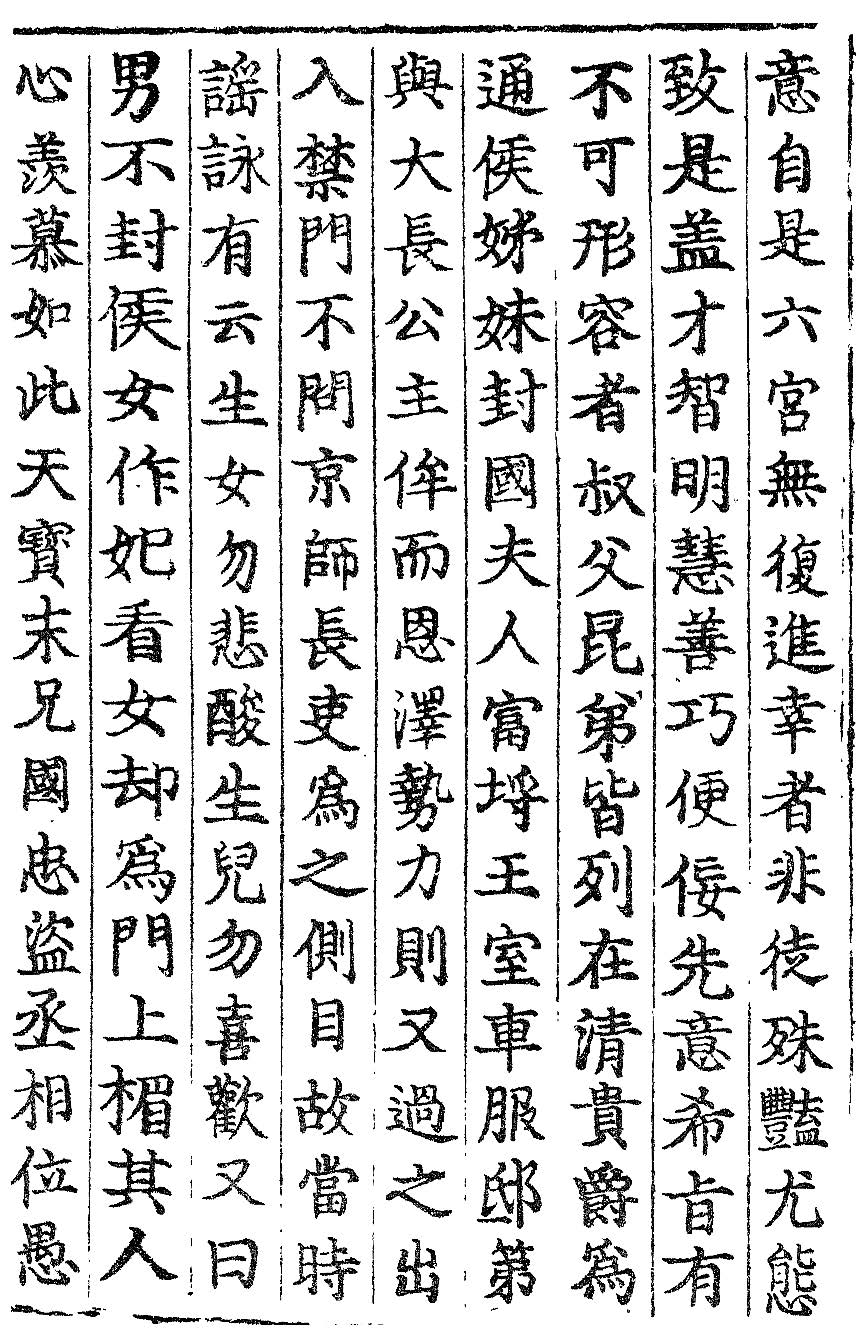 意自是六宮無復進幸者非徒殊豔尤態
致是盖才智明慧善巧便佞先意希旨有
不可形容者叔父昆弟皆列在清貴爵爲
通侯姊妹封國夫人富埓王室車服邸第
與大長公主侔而恩澤勢力則又過之出
入禁門不問京師長吏爲之側目故當時
謡詠有云生女勿悲酸生兒勿喜歡又曰
男不封侯女作妃看女却爲門上楣其人
心羨慕如此天寶末兄國忠盜丞相位愚